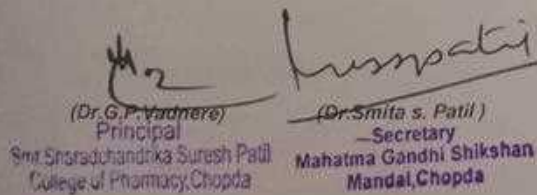 (Dr.G.P.Vadnere)
Principal
Smt.Sharadchandrika Suresh Patil
College of Pharmacy,Chopda
(Dr.Smita s. Patil )
Secretary
Mahatma Gandhi Shikshan
Mandal,Chopda